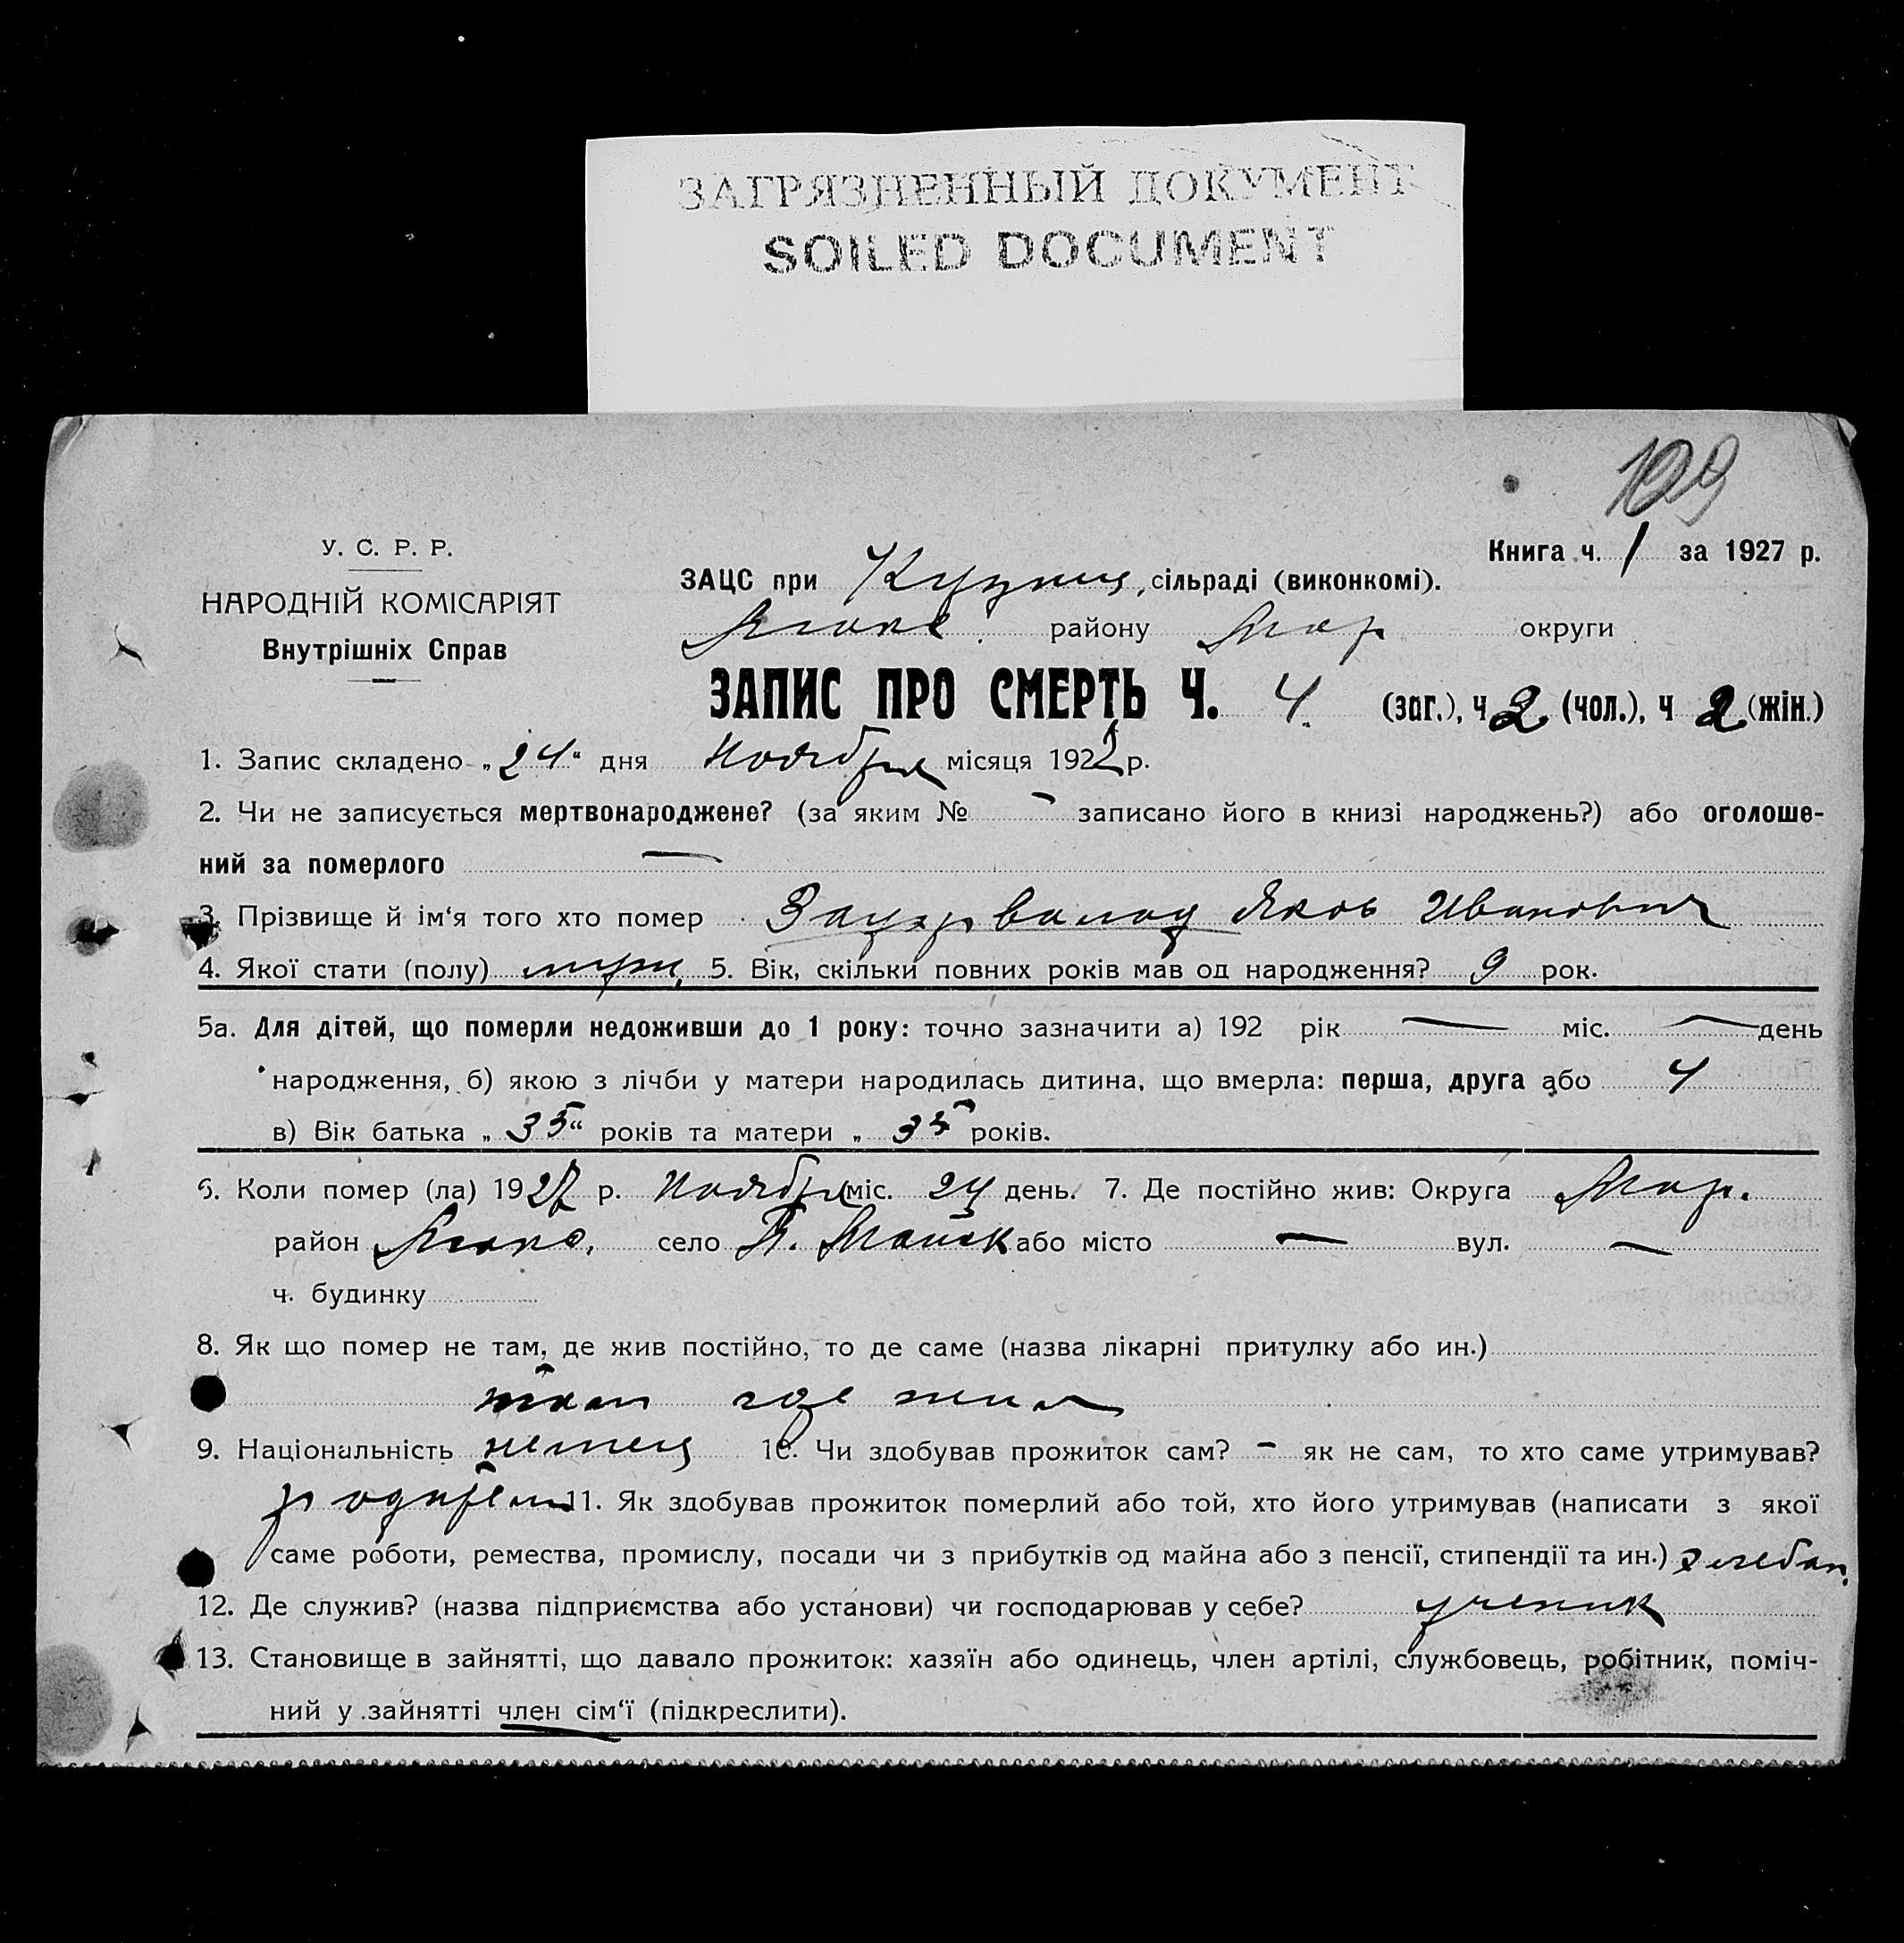 ЗАГРЯЗНЕННЫЙ ДОКУМЕНТ
SOILED DOCUMENT
109
У. С. Р. Р.
НАРОДНІЙ КОМІСАРІЯТ
Внутрішніх Справ
Книга ч. 1 за 1927 р.
ЗАЦС при сільраді (виконкомі).
району Мар округи
ЗАПИС ПРО СМЕРТЬ Ч. 4. (заг.), ч 2 (чол.), ч 2 (жін.)
1. Запис складено „24“ дня Ноября місяця 1927 р.
2. Чи не записується мертвонароджене? (за яким № - записано його в книзі народжень?) або оголоше-
ний за померлого —
3. Прізвище й ім‘я того хто помер Яков Иванович
4. Якої стати (полу) муж. 5. Вік, скільки повних років мав од народження? 9 рок.
5а. Для дітей, що померли недоживши до 1 року: точно зазначити а) 192 рік — міс. — день
народження, б) якою з лічби у матери народилась дитина, що вмерла: перша, друга або 4
в) Вік батька „35“ років та матери „35 років.
6. Коли помер (ла) 1927 р. Ноября міс. 24 день. 7. Де постійно жив: Округа Мар.
район село або місто — вул. —
ч. будинку
8. Як що помер не там, де жив постійно, то де саме (назва лікарні притулку або ин.)
там где жил
9. Національність немец 10. Чи здобував прожиток сам? - як не сам, то хто саме утримував?
родители 11. Як здобував прожиток померлий або той, хто його утримував (написати з якої
саме роботи, ремества, промислу, посади чи з прибутків од майна або з пенсії, стипендії та ин.) хлебоп.
12. Де служив? (назва підприємства або установи) чи господарював у себе? ученик
13. Становище в зайнятті, що давало прожиток: хазяїн або одинець, член артілі, службовець, робітник, поміч-
ний у зайнятті член сім‘ї (підкреслити).